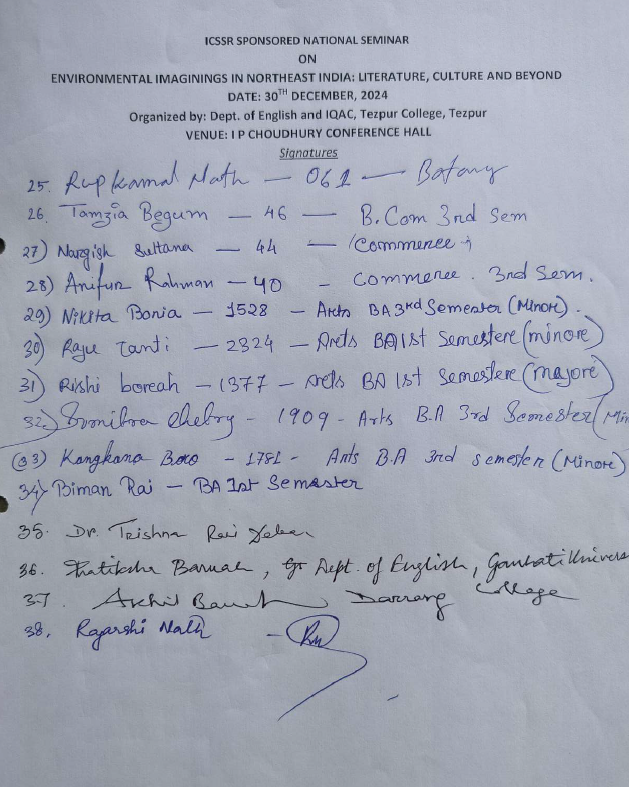 ICSSR SPONSORED NATIONAL SEMINAR
ON
ENVIRONMENTAL IMAGININGS IN NORTHEAST INDIA: LITERATURE, CULTURE AND BEYOND
DATE: 30TH DECEMBER, 2024
Organized by: Dept. of English and IQAC, Tezpur College, Tezpur
VENUE: I P CHOUDHURY CONFERENCE HALL
Signatures
25. Rupkamal Nath — 061 — Botany
26. Tamzia Begum — 46 — B.Com 3rd Sem
27) Nargish Sultana — 44 — Commerce
28) Anifur Rahman — 40 - Commerce. 3rd Sem.
29) Nikita Boria — 1528 — Arts BA 3rd Semester (Minor).
30) Raju Tanti — 2324 — Arets BA 1st Semestere (minore)
31) Rishi boreah — 1377 — Arets BA 1st Semestere (majore)
32) - 1909 - Arts B.A 3rd Semester (Min
33) Kangkana Boro - 1781 - Arts B.A 3rd semester (Minor)
34) Biman Rai — BA 1st Semester
35. Dr. Trishna Rani
36. Pratiksha Baruah, Dept. of English, Gauhati Univers
37. Akhil Darrang College
38. Rajarshi Nath -